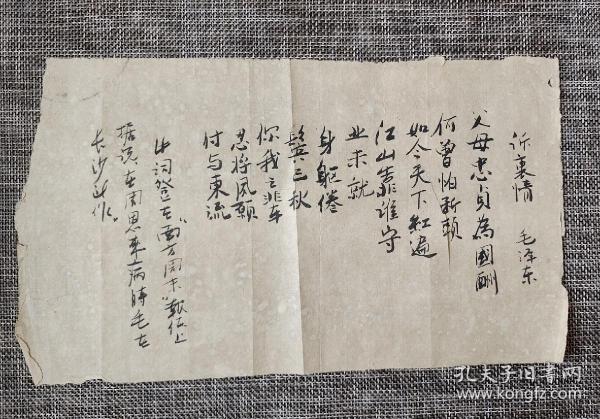 诉衷情 毛泽东
父母忠贞為國酬
何曾怕斷頭
如今天下紅遍
江山靠谁守
业未就
身躯倦
鬓已秋
你我之辈
忍将夙願
付与東流
此词登在“南方周末”報纸上
据说在周恩来病时毛在
长沙所作。
孔夫子旧書网
www.kongfz.com